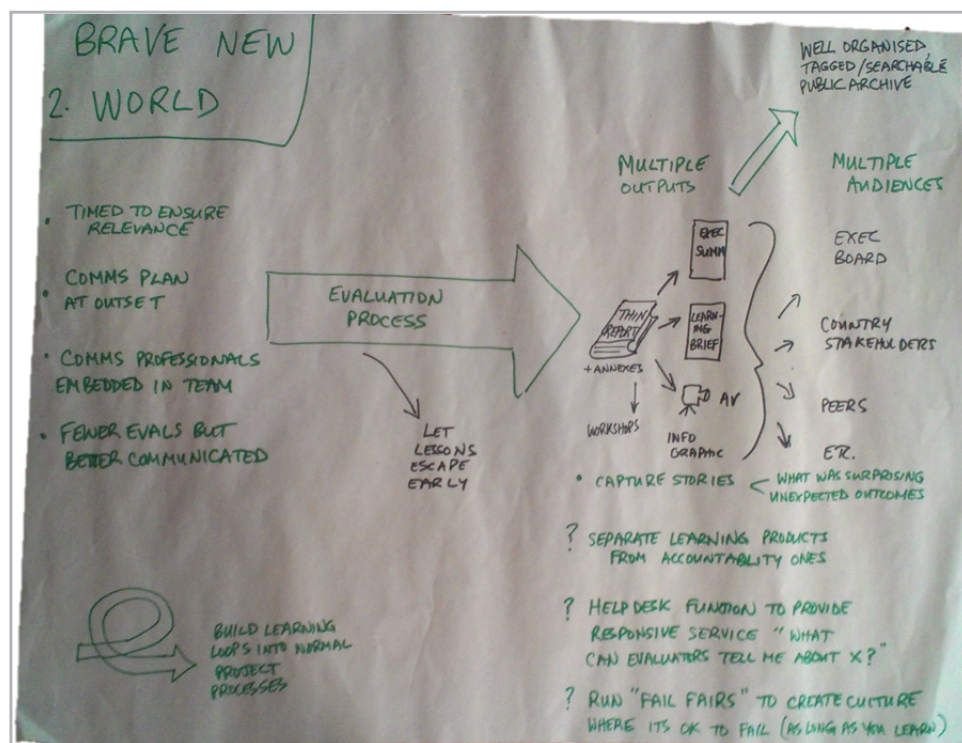 BRAVE NEW
2. WORLD
• TIMED TO ENSURE
RELEVANCE
• COMMS PLAN
AT OUTSET
• COMMS PROFESSIONALS
EMBEDDED IN TEAM
• FEWER EVALS BUT
BETTER COMMUNICATED
EVALUATION
PROCESS
LET
LESSONS
ESCAPE
EARLY
BUILD LEARNING
LOOPS INTO NORMAL
PROJECT
PROCESSES
WELL ORGANISED,
TAGGED/SEARCHABLE
PUBLIC ARCHIVE
MULTIPLE
OUTPUTS
THIN
REPORT
+ ANNEXES
WORKSHOPS
EXEC
SUMM
LEARN-
ING
BRIEF
AV
INFO
GRAPHIC
MULTIPLE
AUDIENCES
EXEC
BOARD
COUNTRY
STAKEHOLDERS
PEERS
ETC.
• CAPTURE STORIES < WHAT WAS SURPRISING
UNEXPECTED OUTCOMES
? SEPARATE LEARNING PRODUCTS
FROM ACCOUNTABLITY ONES
? HELPDESK FUNCTION TO PROVIDE
RESPONSIVE SERVICE "WHAT
CAN EVALUATORS TELL ME ABOUT X?"
? RUN "FAIL FAIRS" TO CREATE CULTURE
WHERE ITS OK TO FAIL (AS LONG AS YOU LEARN)